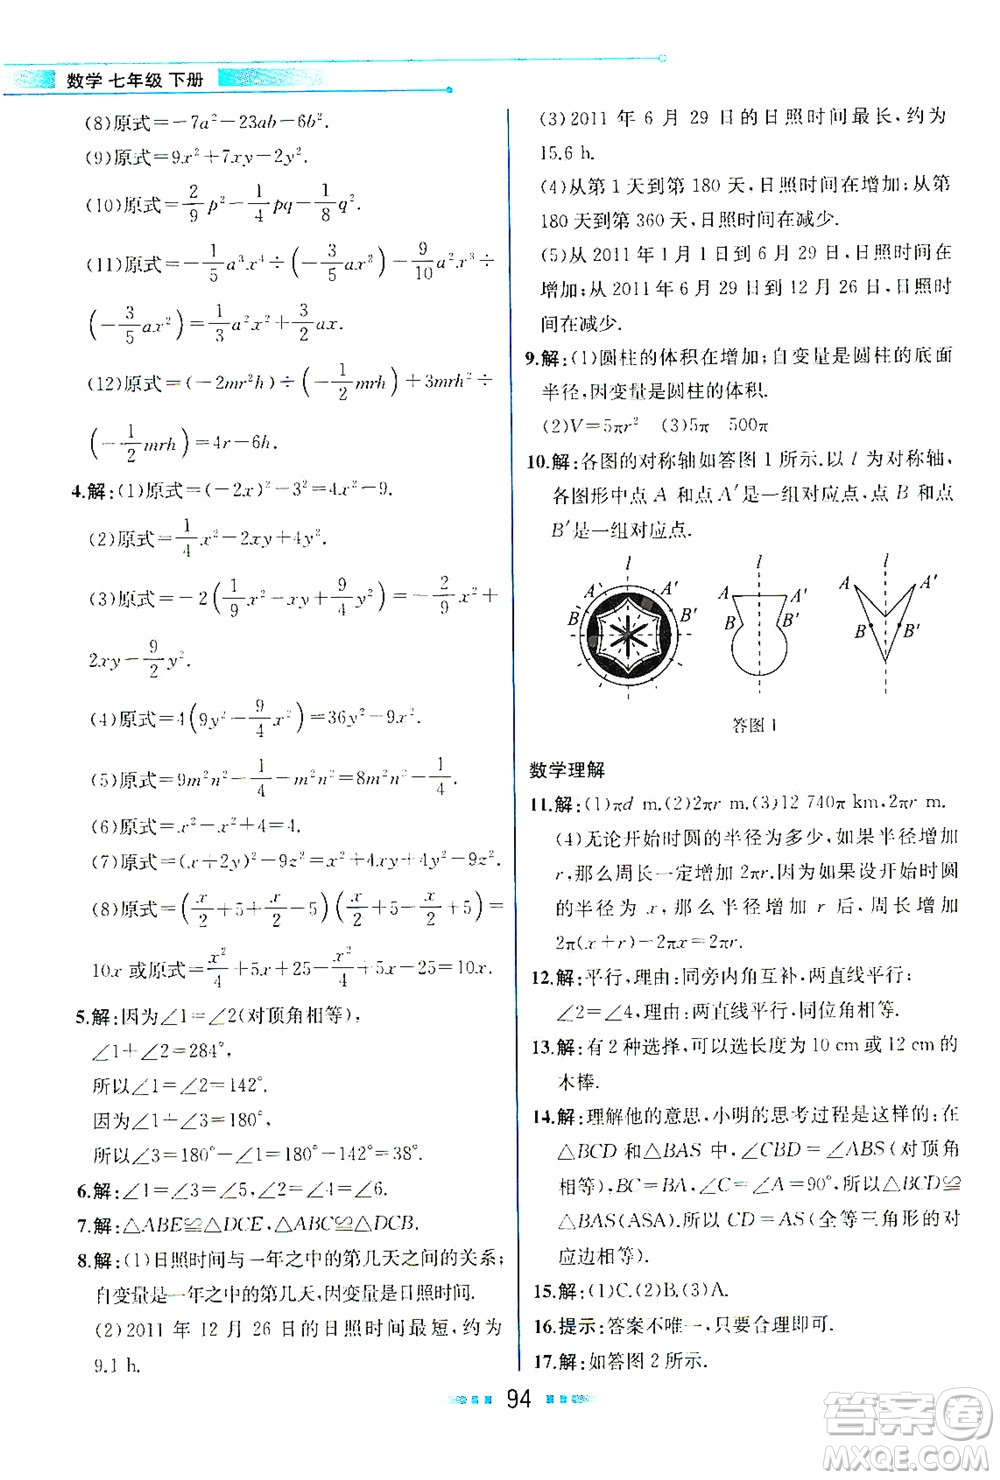 数学 七年级 下册
(8)原式=-7a²-23ab-6b².
(9)原式=9x²+7xy-2y².
(10)原式=2/9p²-1/4pq-1/8q².
(11)原式=-1/5a³x⁴÷(-3/5ax³)-9/10a²x³÷
(-3/5ax³)=1/3a²x²+3/2ax.
(12)原式=(-2mr²h)÷(-1/2mrh)+3mrh²÷
(-1/2mrh)=4r-6h.
4.解:(1)原式=(-2x)²-3²=4x²-9.
(2)原式=1/4x²-2xy+4y².
(3)原式=-2(1/9x²-xy+9/4y²)=-2/9x²+
2xy-9/2y².
(4)原式=4(9y²-9/4x²)=36y²-9x².
(5)原式=9m²n²-1/4-m²n²=8m²n²-1/4.
(6)原式=x²-x²+4=4.
(7)原式=(x+2y)²-9z²=x²+4xy+4y²-9z².
(8)原式=(x/2+5+x/2-5)(x/2+5-x/2+5)=
10x或原式=x²/4+5x+25-x²/4+5x-25=10x.
5.解:因为∠1=∠2(对顶角相等),
∠1+∠2=284°,
所以∠1=∠2=142°.
因为∠1+∠3=180°,
所以∠3=180°-∠1=180°-142°=38°.
6.解:∠1=∠3=∠2=∠4=∠6.
7.解:△ABE≌△DCE,△ABC≌△DCB.
8.解:(1)日照时间与一年之中的第几天之间的关系;
自变量是一年之中的第几天,因变量是日照时间.
(2)2011 年 12 月 26 日的日照时间最短,约为
9.1 h.
(3)2011 年 6 月 29 日的日照时间最长,约为
15.6 h.
(4)从第 1 天到第 180 天,日照时间在增加;从第
180 天到第 360 天,日照时间在减少.
(5)从 2011 年 1 月 1 日到 6 月 29 日,日照时间在
增加;从 2011 年 6 月 29 日到 12 月 26 日,日照时
间在减少.
9.解:(1)圆柱的体积在增加;自变量是圆柱的底面
半径,因变量是圆柱的体积.
(2)V=5πr² (3)5π 500π
10.解:各图的对称轴如答图 1 所示.以 l 为对称轴,
各图形中点 A 和点 A′是一组对应点,点 B 和点
B′是一组对应点.
l l l
A A′ A A′ A A′
B B′ B B′ B B′
答图 1
数学理解
11.解:(1)πd m.(2)2πr m.(3)12 740π km,2πr m.
(4)无论开始时圆的半径为多少,如果半径增加
r,那么周长一定增加 2πr.因为如果设开始时圆
的半径为 x,那么半径增加 r 后,周长增加
2π(x+r)-2πx=2πr.
12.解:平行,理由:同旁内角互补,两直线平行;
∠2=∠4,理由:两直线平行,同位角相等.
13.解:有 2 种选择,可以选长度为 10 cm或 12 cm的
木棒.
14.解:理解他的意思,小明的思考过程是这样的:在
△BCD 和△BAS 中,∠CBD=∠ABS(对顶角
相等),BC=BA,∠C=∠A=90°,所以△BCD≌
△BAS(ASA).所以 CD=AS(全等三角形的对
应边相等).
15.解:(1)C.(2)B.(3)A.
16.提示:答案不唯一,只要合理即可.
17.解:如答图 2 所示.
94
答案圈
MXQE.COM